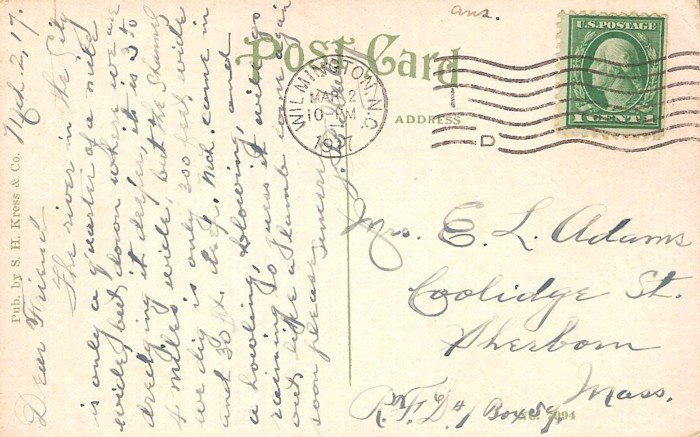 Pub. by S. H. Kress & Co.
Post Card
ADDRESS
ans.
WILMINGTON, N.C.
MAR 2
10-PM
1917
D
U.S. POSTAGE
1 CENT 1
Mch. 2, 17.
Dear Friend
The river in the City
is only a quarter of a mile
wide, but down where we are
dredging it deeper, it is 3 to
4 miles wide, but the Channel
we dig is only 300 feet wide
and 30 ft. deep. Mch. came in
a howling, blowing, and
raining so guess it will go
out like a lamb. Come again
soon please. Sincerely
Mrs. E. L. Adams
Coolidge St.
Sherborn
Mass.
R. F. D. #1 Box 59